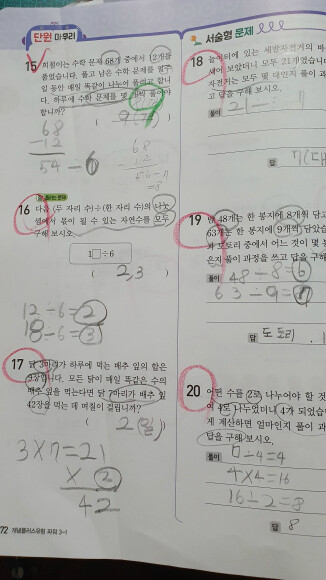 단원 마무리
15 희철이는 수학 문제 68개 중에서 12개를
풀었습니다. 풀고 남은 수학 문제를 일주
일 동안 매일 똑같이 나누어 풀려고 합니
다. 하루에 수학 문제를 몇 개씩 풀어야
합니까?
68
-12
54
16 다음 (두 자리 수)÷(한 자리 수)의 나눗
셈에서 몫이 될 수 있는 자연수를 모두
구해 보시오.
1□÷6
( 2, 3
12÷6=2
18÷6=3
17 닭 3마리가 하루에 먹는 배추 잎의 합은
9장입니다. 모든 닭이 매일 똑같은 수의
배추 잎을 먹는다면 닭 7마리가 배추 잎
42장을 먹는 데 며칠이 걸립니까?
( 2(일) )
3×7=21
×2
42
72 개념플러스유형 파워 3-1
서술형 문제
18 놀이터에 있는 세발자전거의 바
세어 보았더니 모두 21개였습니
자전거는 모두 몇 대인지 풀이 과
고 답을 구해 보시오.
풀이 21÷
답 7(대
19 밤 48개는 한 봉지에 8개씩 담고
63개는 한 봉지에 9개씩 담았습
와 도토리 중에서 어느 것이 몇 봉
은지 풀이 과정을 쓰고 답을 구해
풀이 48÷8=6
63÷9=7
답 도토리, 1
20 어떤 수를 2로 나누어야 할 것
여 4로 나누었더니 4가 되었습
게 계산하면 얼마인지 풀이 과
답을 구해 보시오.
풀이 □÷4=4
4×4=16
16÷2=8
답 8